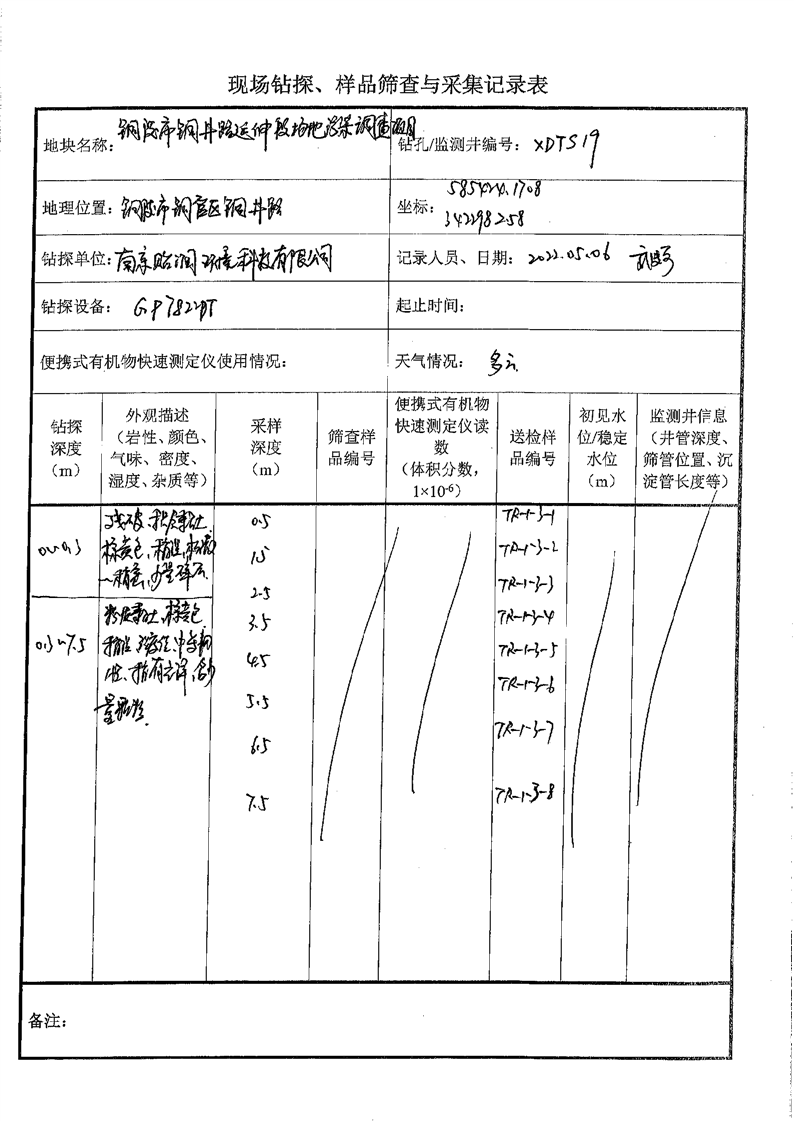 现场钻探、样品筛查与采集记录表
地块名称: 铜陵市铜井路延伸段场地污染调查项目
钻孔/监测井编号: XDTS19
地理位置: 铜陵市铜官区铜井路
坐标: 585424.1708
342298258
钻探单位: 南京 润环境科技有限公司
记录人员、日期: 2022.05.06
钻探设备: GP7822DT
起止时间:
便携式有机物快速测定仪使用情况:
天气情况: 多云
钻探
深度
(m)
外观描述
(岩性、颜色、
气味、密度、
湿度、杂质等)
采样
深度
(m)
筛查样
品编号
便携式有机物
快速测定仪读
数
(体积分数,
1×10⁻⁶)
送检样
品编号
初见水
位/稳定
水位
(m)
监测井信息
(井管深度、
筛管位置、沉
淀管长度等)
0~0.3
棕黄色、稍湿,
一稍密,少量碎石
0.3~7.5
粉质黏土,棕黄色
稍湿、中等韧
性、稍有光泽,含少
量
0.5 TR-1-3-1
1.5 TR-1-3-2
2.5 TR-1-3-3
3.5 TR-1-3-4
4.5 TR-1-3-5
5.5 TR-1-3-6
6.5 TR-1-3-7
7.5 TR-1-3-8
备注: